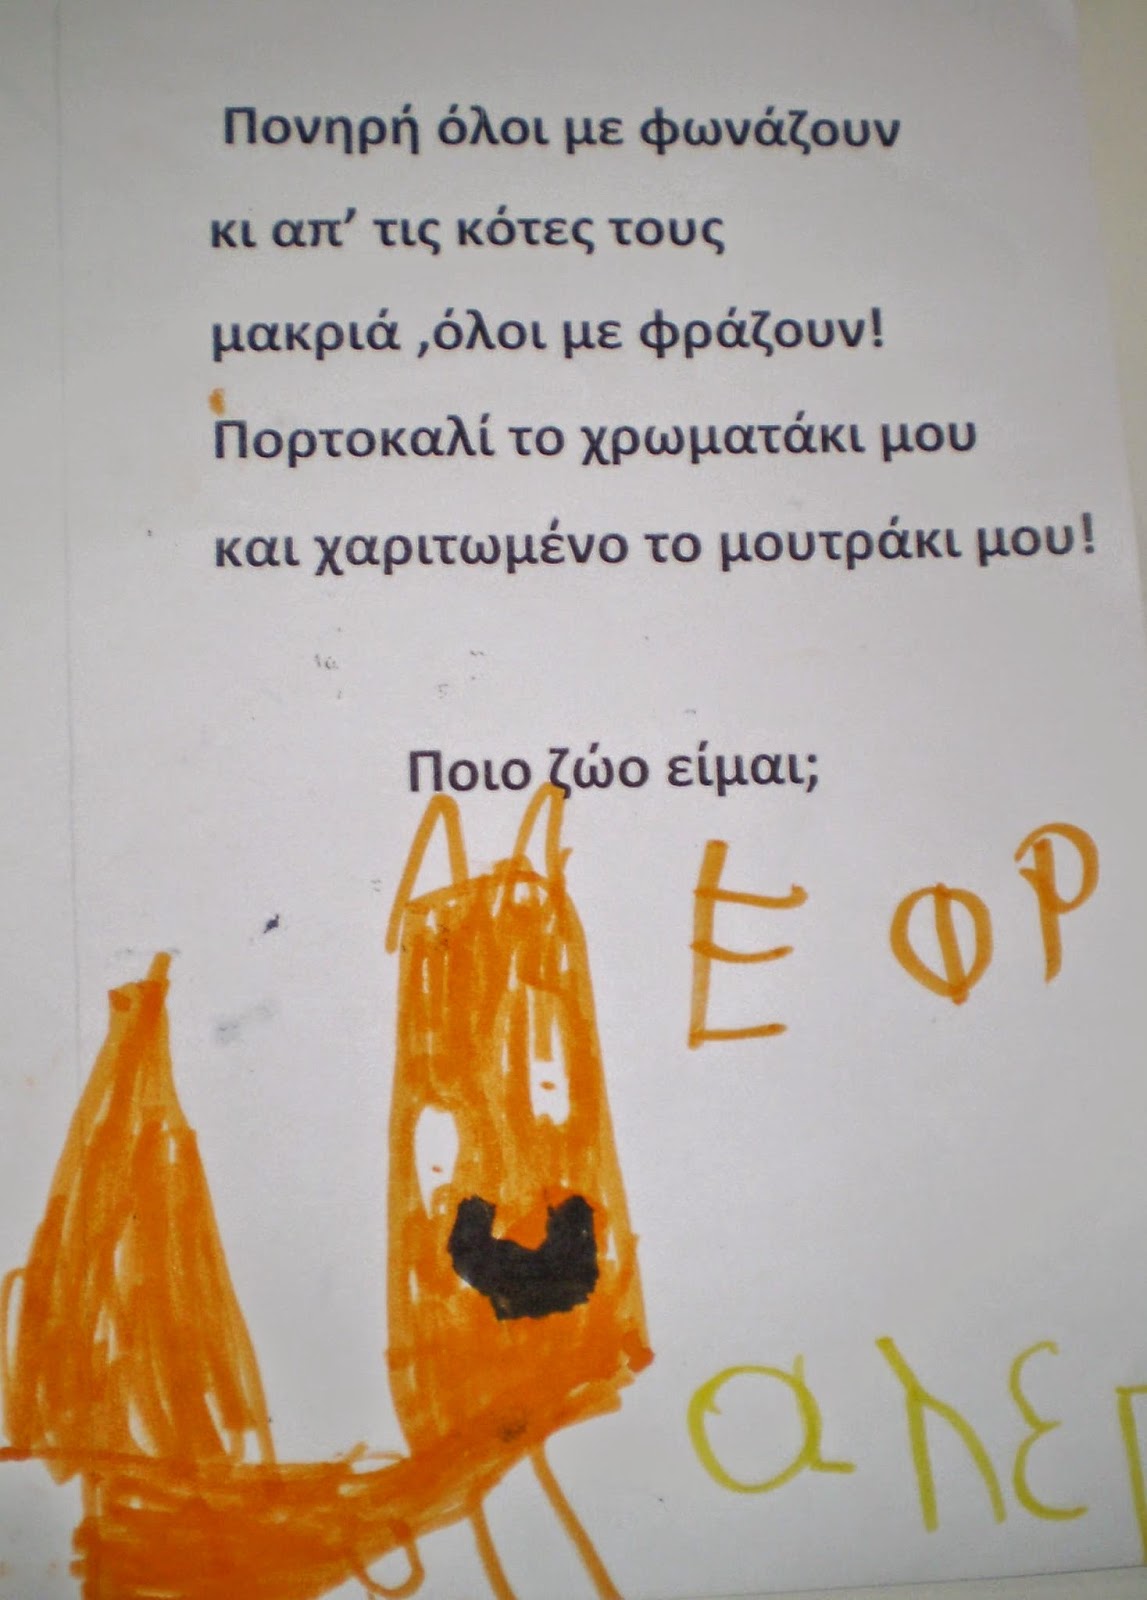 Πονηρή όλοι με φωνάζουν
κι απ’ τις κότες τους
μακριά ,όλοι με φράζουν!
Πορτοκαλί το χρωματάκι μου
και χαριτωμένο το μουτράκι μου!
Ποιο ζώο είμαι;
ΕΦΡ
αλε